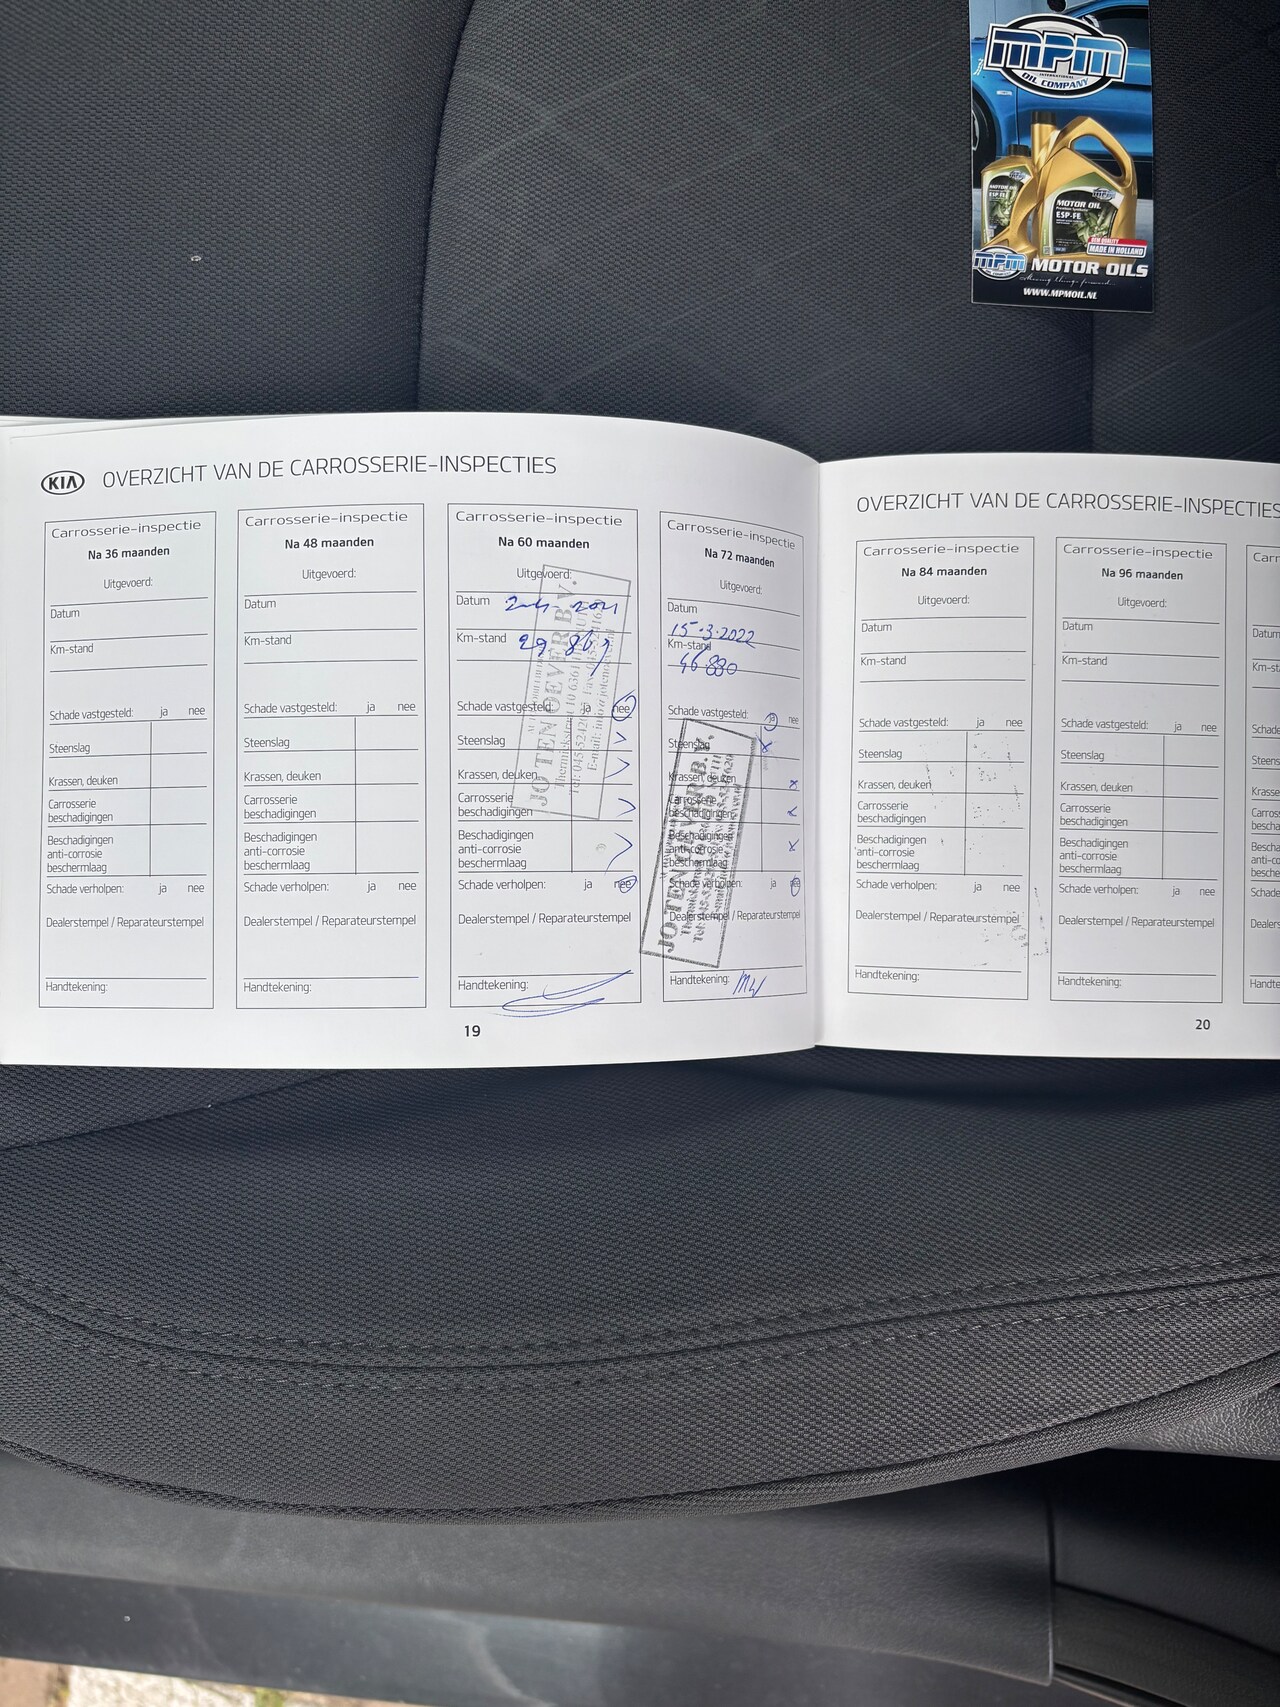 MPM
INTERNATIONAL
OIL COMPANY
MOTOR OIL
ESP-FE
MOTOR OIL
ESP-FE
OEM QUALITY
MADE IN HOLLAND
MPM MOTOR OILS
WWW.MPMOIL.NL
KIA OVERZICHT VAN DE CARROSSERIE-INSPECTIES
Carrosserie-inspectie
Na 36 maanden
Uitgevoerd:
Datum
Km-stand
Schade vastgesteld: ja nee
Steenslag
Krassen, deuken
Carrosserie
beschadigingen
Beschadigingen
anti-corrosie
beschermlaag
Schade verholpen: ja nee
Dealerstempel / Reparateurstempel
Handtekening:
Carrosserie-inspectie
Na 48 maanden
Uitgevoerd:
Datum
Km-stand
Schade vastgesteld: ja nee
Steenslag
Krassen, deuken
Carrosserie
beschadigingen
Beschadigingen
anti-corrosie
beschermlaag
Schade verholpen: ja nee
Dealerstempel / Reparateurstempel
Handtekening:
Carrosserie-inspectie
Na 60 maanden
Uitgevoerd:
Datum
Km-stand
Schade vastgesteld: ja nee
Steenslag
Krassen, deuken
Carrosserie
beschadigingen
Beschadigingen
anti-corrosie
beschermlaag
Schade verholpen: ja nee
Dealerstempel / Reparateurstempel
Handtekening:
JO TEN OEVER B.V.
Carrosserie-inspectie
Na 72 maanden
Uitgevoerd:
Datum
15-3-2022
Km-stand
46 880
Schade vastgesteld: ja nee
Steenslag
Krassen, deuken
Carrosserie
beschadigingen
Beschadigingen
anti-corrosie
beschermlaag
Schade verholpen: ja nee
Dealerstempel / Reparateurstempel
Handtekening:
JO TEN OEVER B.V.
19
OVERZICHT VAN DE CARROSSERIE-INSPECTIES
Carrosserie-inspectie
Na 84 maanden
Uitgevoerd:
Datum
Km-stand
Schade vastgesteld: ja nee
Steenslag
Krassen, deuken
Carrosserie
beschadigingen
Beschadigingen
anti-corrosie
beschermlaag
Schade verholpen: ja nee
Dealerstempel / Reparateurstempel
Handtekening:
Carrosserie-inspectie
Na 96 maanden
Uitgevoerd:
Datum
Km-stand
Schade vastgesteld: ja nee
Steenslag
Krassen, deuken
Carrosserie
beschadigingen
Beschadigingen
anti-corrosie
beschermlaag
Schade verholpen: ja nee
Dealerstempel / Reparateurstempel
Handtekening:
20